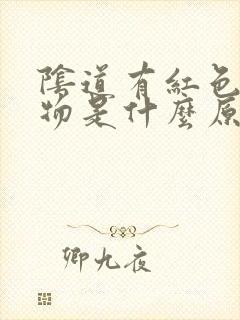 陰道有紅色
物是什麼原
卿九夜